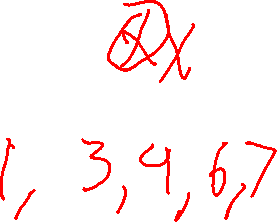 x
1, 3, 4, 6, 7